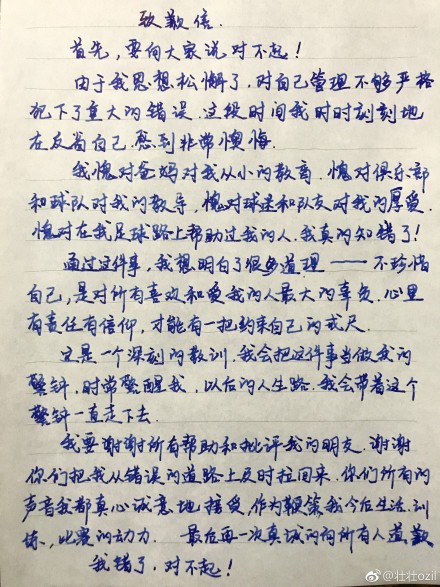 致歉信.
首先,要向大家说对不起!
由于我思想松懈了,对自己管理不够严格
犯下了重大的错误.这段时间我时时刻刻地
在反省自己.感到非常懊悔.
我愧对爸妈对我从小的教育.愧对俱乐部
和球队对我的教导,愧对球迷和队友对我的厚爱.
愧对在我足球路上帮助过我的人.我真的知错了!
通过这件事,我想明白了很多道理——不珍惜
自己,是对所有喜欢和爱我的人最大的辜负.心里
有责任有信仰,才能有一把约束自己的戒尺.
这是一个深刻的教训.我会把这件事当做我的
警钟,时常警醒我,以后的人生路.我会带着这个
警钟一直走下去.
我要谢谢所有帮助和批评我的朋友.谢谢
你们把我从错误的道路上及时拉回来.你们所有的
声音我都真心诚意地接受,作为鞭策我今后生活.训
练,比赛的动力. 最后再一次真诚的向所有人道歉
我错了,对不起!
@壮壮ozil